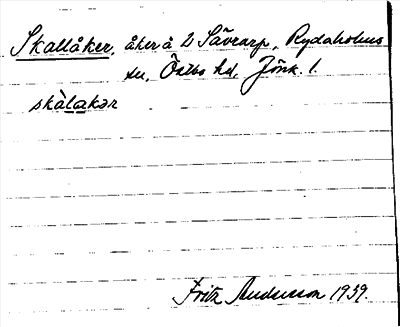 Skallåker, åker å 2 Sävearp, Rydaholms
sn, Östbo hd, Jönk. l.
skàlakər
Fritz Andersson 1939.